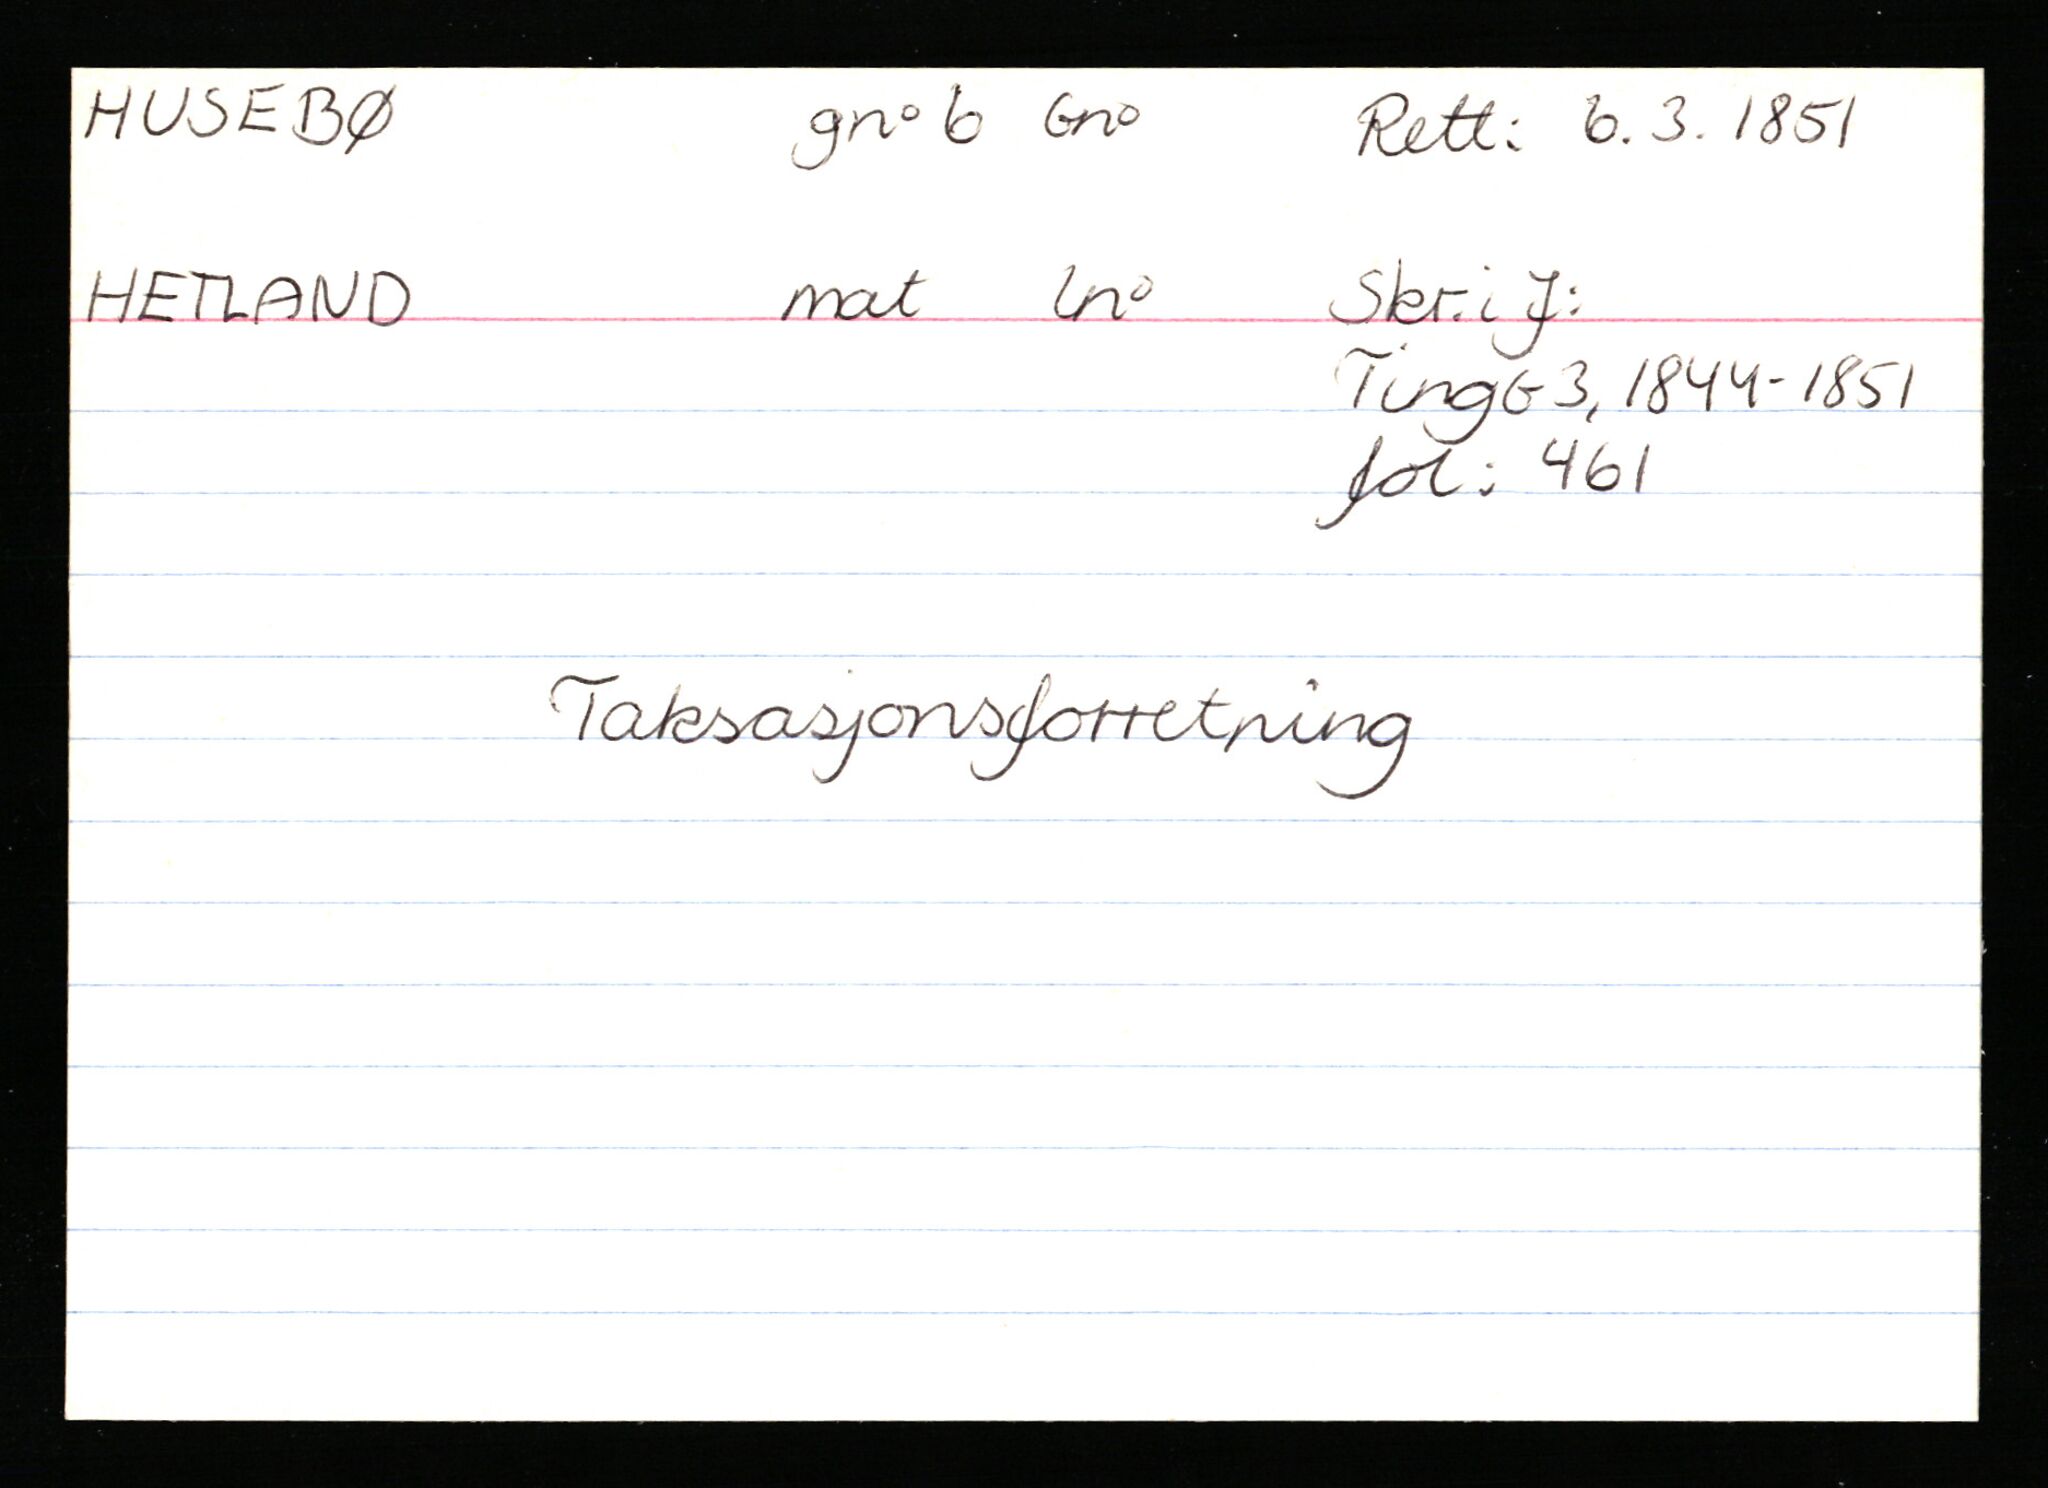 HUSEBØ gn° 6 bn° Rett: 6.3.1851
HETLAND mat ln° Skr. i J:
Tingb 3, 1844-1851
fol: 461
Taksasjonsforretning